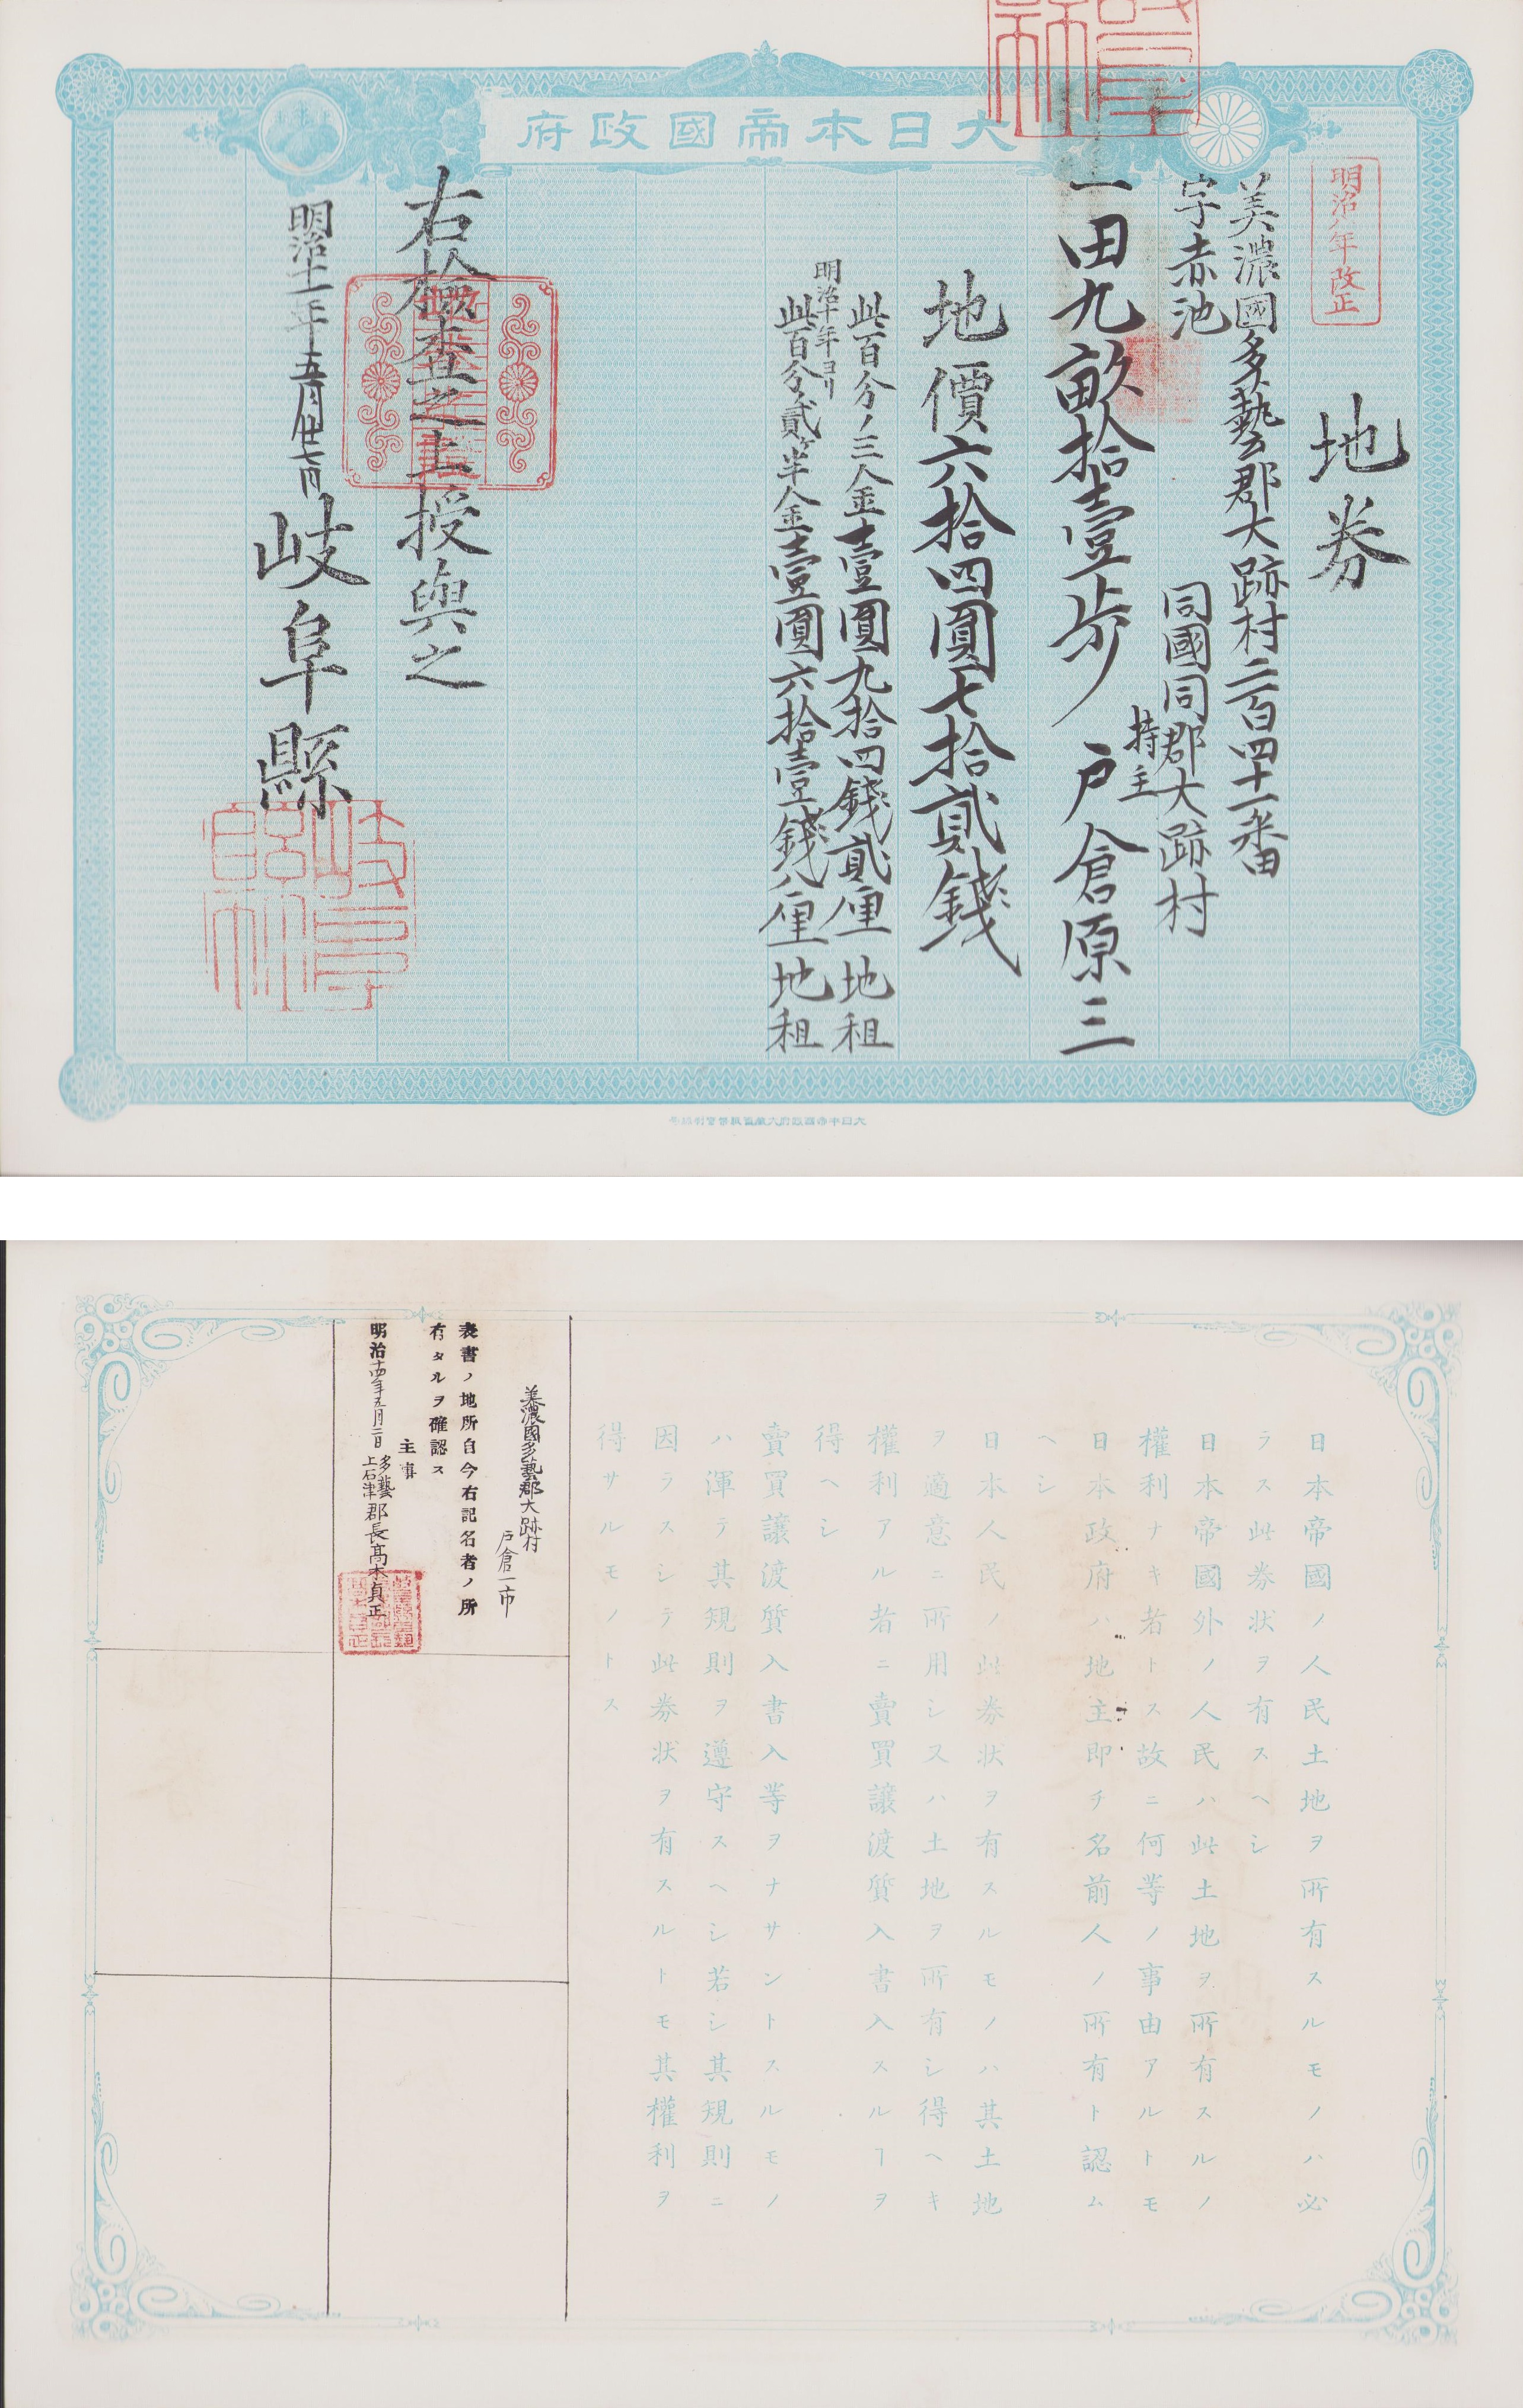 大日本帝國政府
明治八年改正
地券
美濃國多藝郡大跡村二百四十一番
字赤池
同國同郡大跡村
一田九畝拾壹歩
持主
戸倉原三
地價六拾四圓七拾貳錢
此百分ノ三金壹圓九拾四錢貳厘地租
明治十年ヨリ
此百分ノ貳ケ半金壹圓六拾壹錢八厘地租
右檢査之上授與之
明治十一年五月廿七日
岐阜縣
大日本帝國政府大藏省紙幣寮製造
日本帝國ノ人民土地ヲ所有スルモノハ必
ラス此券状ヲ有スヘシ
日本帝國外ノ人民ハ此土地ヲ所有スルノ
權利ナキ者トス故ニ何等ノ事由アルトモ
日本政府ハ地主即チ名前人ノ所有ト認ム
ヘシ
日本人民ノ此券状ヲ有スルモノハ其土地
ヲ適意ニ所用シ又ハ土地ヲ所有シ得ヘキ
權利アル者ニ賣買讓渡質入書入スルヿヲ
得ヘシ
賣買讓渡質入書入等ヲナサントスルモノ
ハ渾テ其規則ヲ遵守スヘシ若シ其規則ニ
因ラスシテ此券状ヲ有スルトモ其權利ヲ
得サルモノトス
美濃國多藝郡大跡村
戸倉一市
表書ノ地所自今右記名者ノ所
有タルヲ確認ス
主事
明治十四年五月二日
多藝
上石津
郡長高木貞正